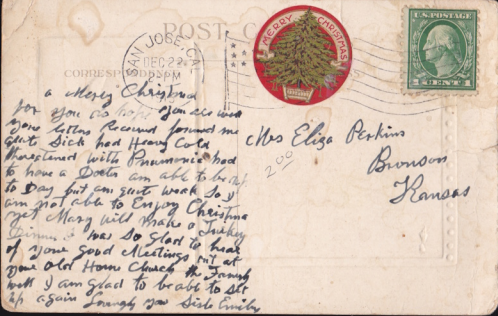 POST CARD
CORRESPONDENCE
SAN JOSE, CAL.
DEC 22
PM
MERRY CHRISTMAS
U.S. POSTAGE
1 CENT 1
a Merry Christmas
for you as hope you are well
your letter Received found me
quit Sick had Heavy Cold
threatened with Pneumonia had
to have a Doctor am able to be up
to Day but am quit weak So I
am not able to Enjoy Christmas
yet Mary will make a Turkey
Dinner I was So Glad to hear
of your Good Meetings out at
your old Home Church the
well I am glad to be able to Set
up again Lovingly your Sister Emily
Mrs Eliza Perkins
Bronson
Kansas
2 00